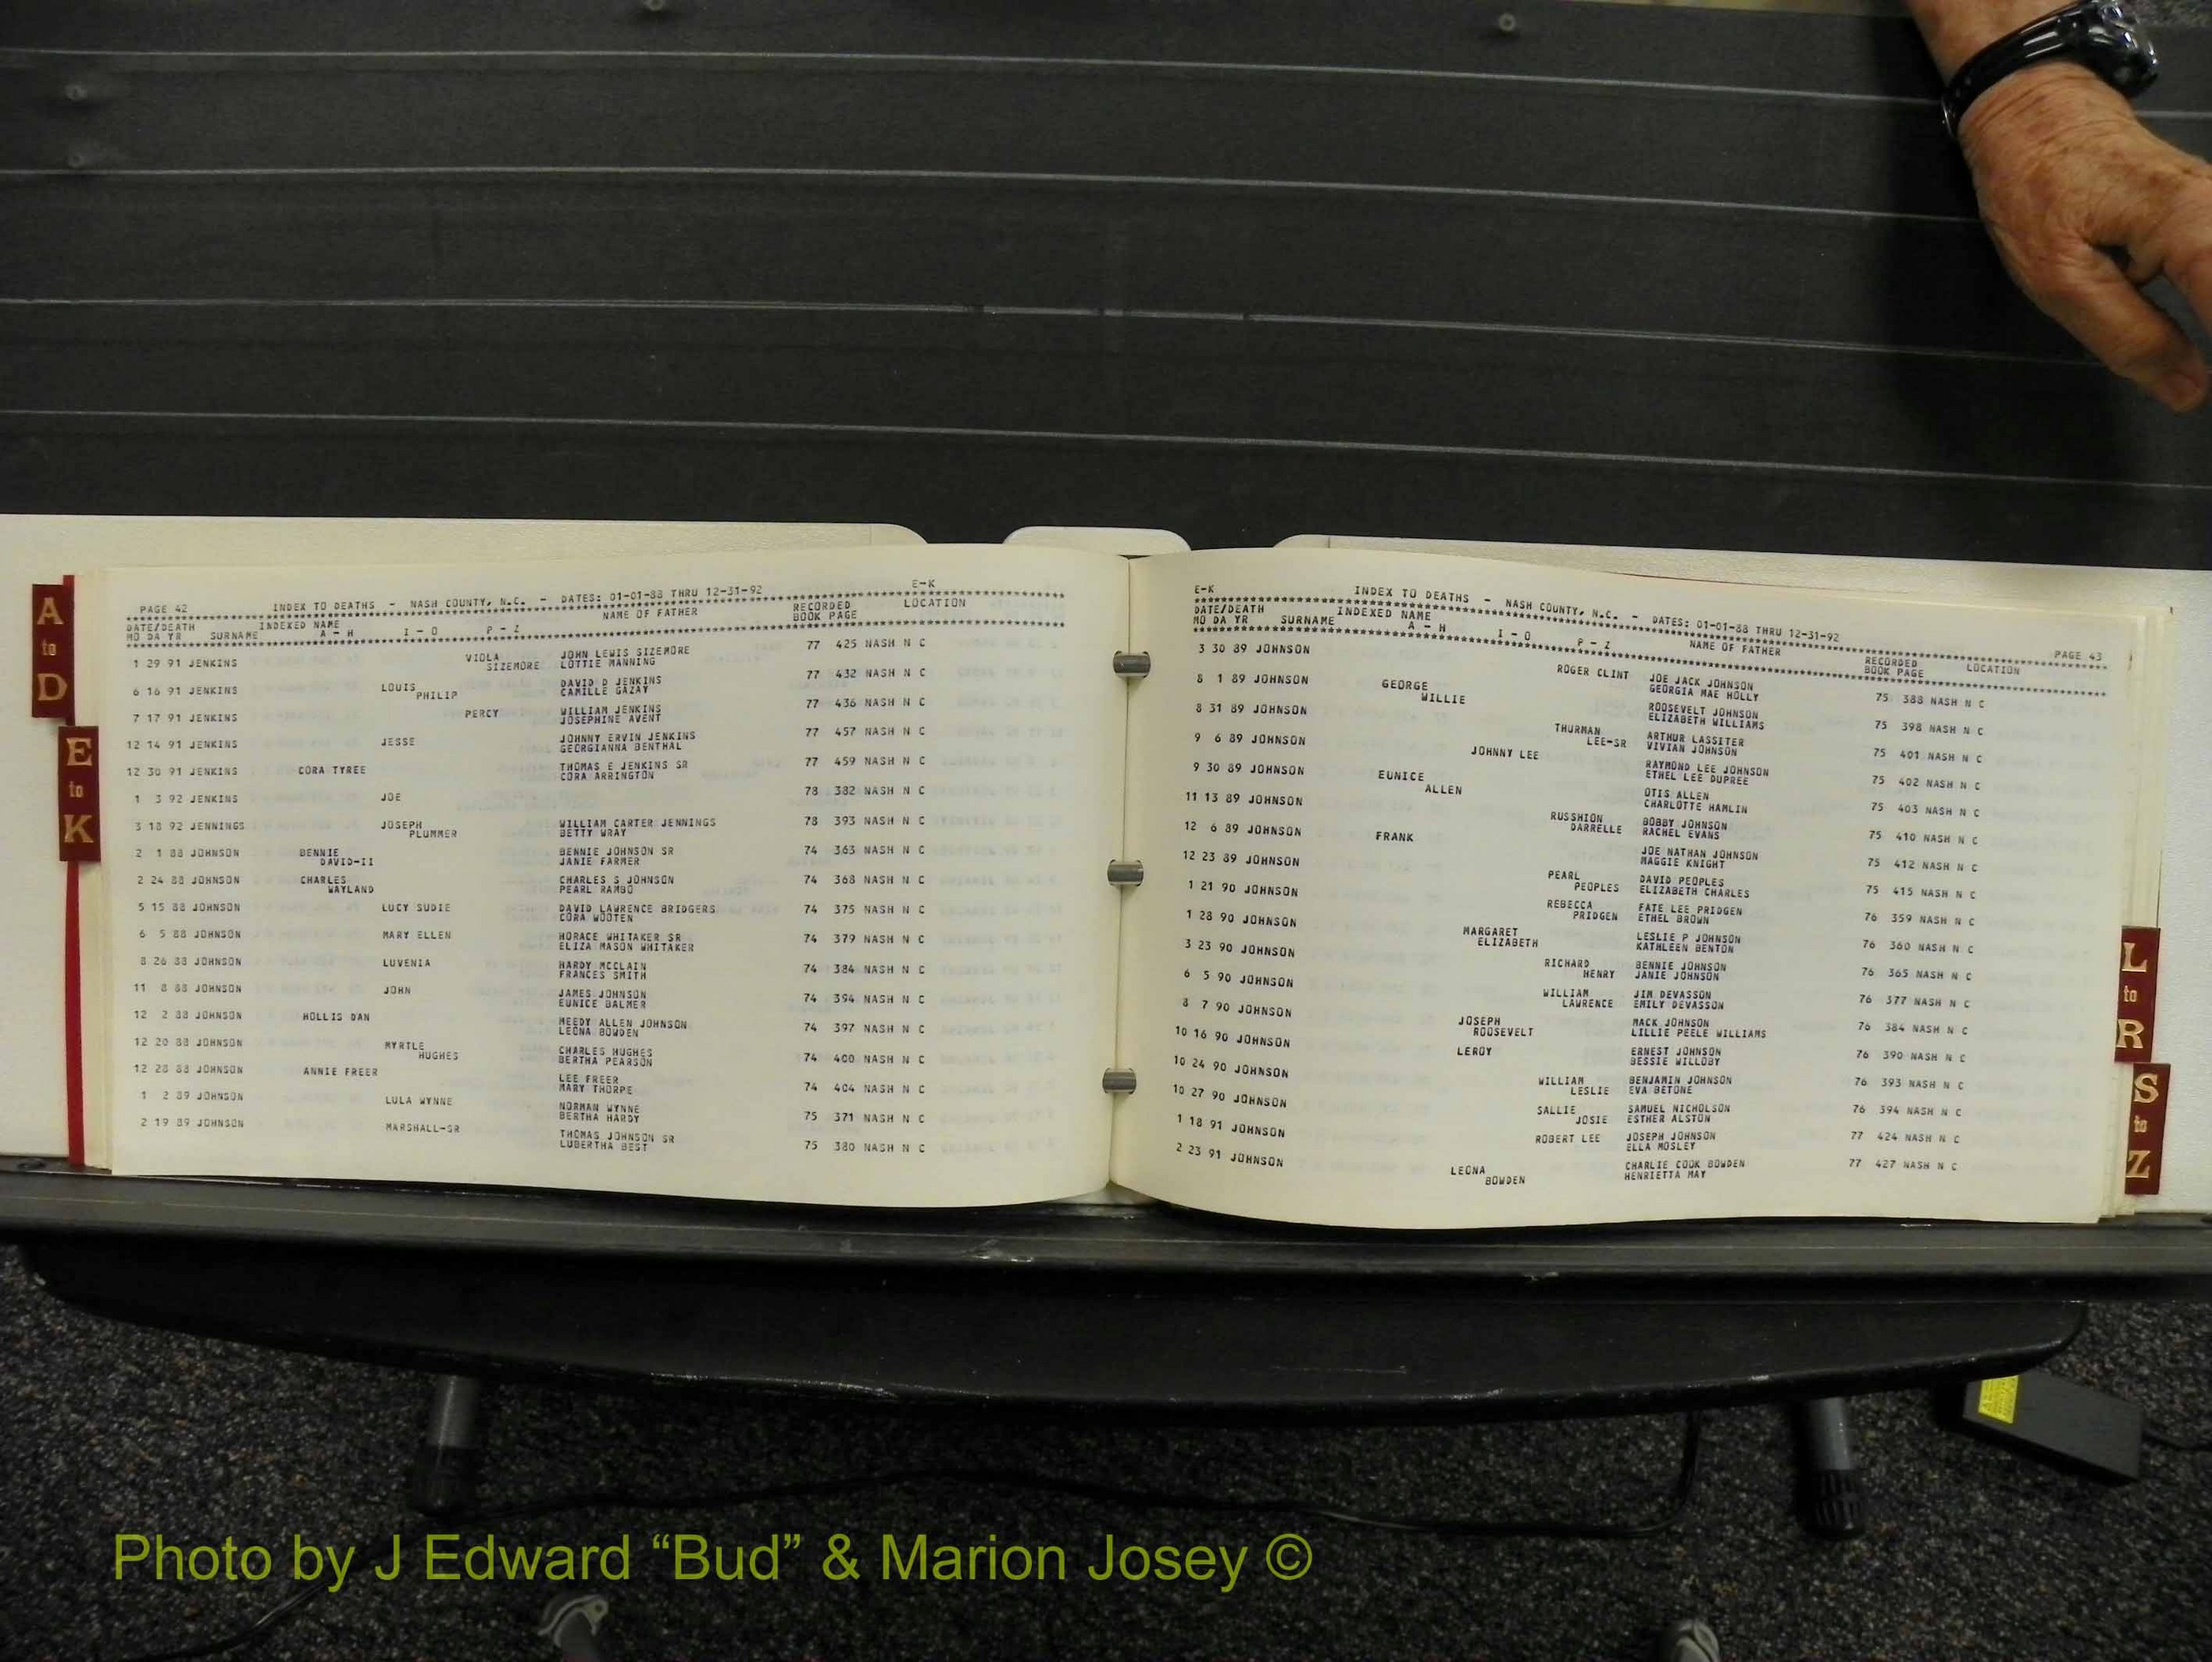 A to D
E to K
PAGE 42 INDEX TO DEATHS - NASH COUNTY, N.C. - DATES: 01-01-88 THRU 12-31-92 E-K
DATE/DEATH INDEXED NAME NAME OF FATHER RECORDED LOCATION
MO DA YR SURNAME A - H I - O P - Z BOOK PAGE
1 29 91 JENKINS VIOLA JOHN LEWIS SIZEMORE 77 425 NASH N C
SIZEMORE LOTTIE MANNING
6 16 91 JENKINS LOUIS DAVID D JENKINS 77 432 NASH N C
PHILIP CAMILLE GAZAY
7 17 91 JENKINS PERCY WILLIAM JENKINS 77 436 NASH N C
JOSEPHINE AVENT
12 14 91 JENKINS JESSE JOHNNY ERVIN JENKINS 77 457 NASH N C
GEORGIANNA BENTHAL
12 30 91 JENKINS CORA TYREE THOMAS E JENKINS SR 77 459 NASH N C
CORA ARRINGTON
1 3 92 JENKINS JOE 78 382 NASH N C
3 18 92 JENNINGS JOSEPH WILLIAM CARTER JENNINGS 78 393 NASH N C
PLUMMER BETTY WRAY
2 1 88 JOHNSON BENNIE BENNIE JOHNSON SR 74 363 NASH N C
DAVID-II JANIE FARMER
2 24 88 JOHNSON CHARLES CHARLES S JOHNSON 74 368 NASH N C
WAYLAND PEARL RAMBO
5 15 88 JOHNSON LUCY SUDIE DAVID LAWRENCE BRIDGERS 74 375 NASH N C
CORA WOOTEN
6 5 88 JOHNSON MARY ELLEN HORACE WHITAKER SR 74 379 NASH N C
ELIZA MASON WHITAKER
8 26 88 JOHNSON LUVENIA HARDY MCCLAIN 74 384 NASH N C
FRANCES SMITH
11 8 88 JOHNSON JOHN JAMES JOHNSON 74 394 NASH N C
EUNICE BALMER
12 2 88 JOHNSON HOLLIS DAN MEEDY ALLEN JOHNSON 74 397 NASH N C
LEONA BOWDEN
12 20 88 JOHNSON MYRTLE CHARLES HUGHES 74 400 NASH N C
HUGHES BERTHA PEARSON
12 28 88 JOHNSON ANNIE FREER LEE FREER 74 404 NASH N C
MARY THORPE
1 2 89 JOHNSON LULA WYNNE NORMAN WYNNE 75 371 NASH N C
BERTHA HARDY
2 19 89 JOHNSON MARSHALL-SR THOMAS JOHNSON SR 75 380 NASH N C
LUBERTHA BEST
E-K INDEX TO DEATHS - NASH COUNTY, N.C. - DATES: 01-01-88 THRU 12-31-92 PAGE 43
DATE/DEATH INDEXED NAME NAME OF FATHER RECORDED LOCATION
MO DA YR SURNAME A - H I - O P - Z BOOK PAGE
3 30 89 JOHNSON ROGER CLINT JOE JACK JOHNSON 75 388 NASH N C
GEORGIA MAE HOLLY
8 1 89 JOHNSON GEORGE ROOSEVELT JOHNSON 75 398 NASH N C
WILLIE ELIZABETH WILLIAMS
8 31 89 JOHNSON THURMAN ARTHUR LASSITER 75 401 NASH N C
LEE-SR VIVIAN JOHNSON
9 6 89 JOHNSON JOHNNY LEE RAYMOND LEE JOHNSON 75 402 NASH N C
ETHEL LEE DUPREE
9 30 89 JOHNSON EUNICE OTIS ALLEN 75 403 NASH N C
ALLEN CHARLOTTE HAMLIN
11 13 89 JOHNSON RUSSHION BOBBY JOHNSON 75 410 NASH N C
DARRELLE RACHEL EVANS
12 6 89 JOHNSON FRANK JOE NATHAN JOHNSON 75 412 NASH N C
MAGGIE KNIGHT
12 23 89 JOHNSON PEARL DAVID PEOPLES 75 415 NASH N C
PEOPLES ELIZABETH CHARLES
1 21 90 JOHNSON REBECCA FATE LEE PRIDGEN 76 359 NASH N C
PRIDGEN ETHEL BROWN
1 28 90 JOHNSON MARGARET LESLIE P JOHNSON 76 360 NASH N C
ELIZABETH KATHLEEN BENTON
3 23 90 JOHNSON RICHARD BENNIE JOHNSON 76 365 NASH N C
HENRY JANIE JOHNSON
6 5 90 JOHNSON WILLIAM JIM DEVASSON 76 377 NASH N C
LAWRENCE EMILY DEVASSON
8 7 90 JOHNSON JOSEPH MACK JOHNSON 76 384 NASH N C
ROOSEVELT LILLIE PEELE WILLIAMS
10 16 90 JOHNSON LEROY ERNEST JOHNSON 76 390 NASH N C
BESSIE WILLOBY
10 24 90 JOHNSON WILLIAM BENJAMIN JOHNSON 76 393 NASH N C
LESLIE EVA BETONE
10 27 90 JOHNSON SALLIE SAMUEL NICHOLSON 76 394 NASH N C
JOSIE ESTHER ALSTON
1 18 91 JOHNSON ROBERT LEE JOSEPH JOHNSON 77 424 NASH N C
ELLA MOSLEY
2 23 91 JOHNSON LEONA CHARLIE COOK BOWDEN 77 427 NASH N C
BOWDEN HENRIETTA MAY
L to R
S to Z
Photo by J Edward “Bud” & Marion Josey ©